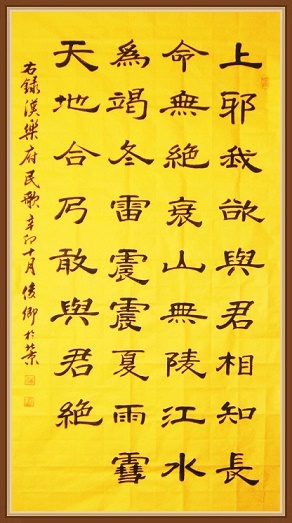 上邪我欲與君相知長
命無絶衰山無陵江水
爲竭冬雷震震夏雨雪
天地合乃敢與君絶
右録漢樂府民歌辛卯十月俊卿於